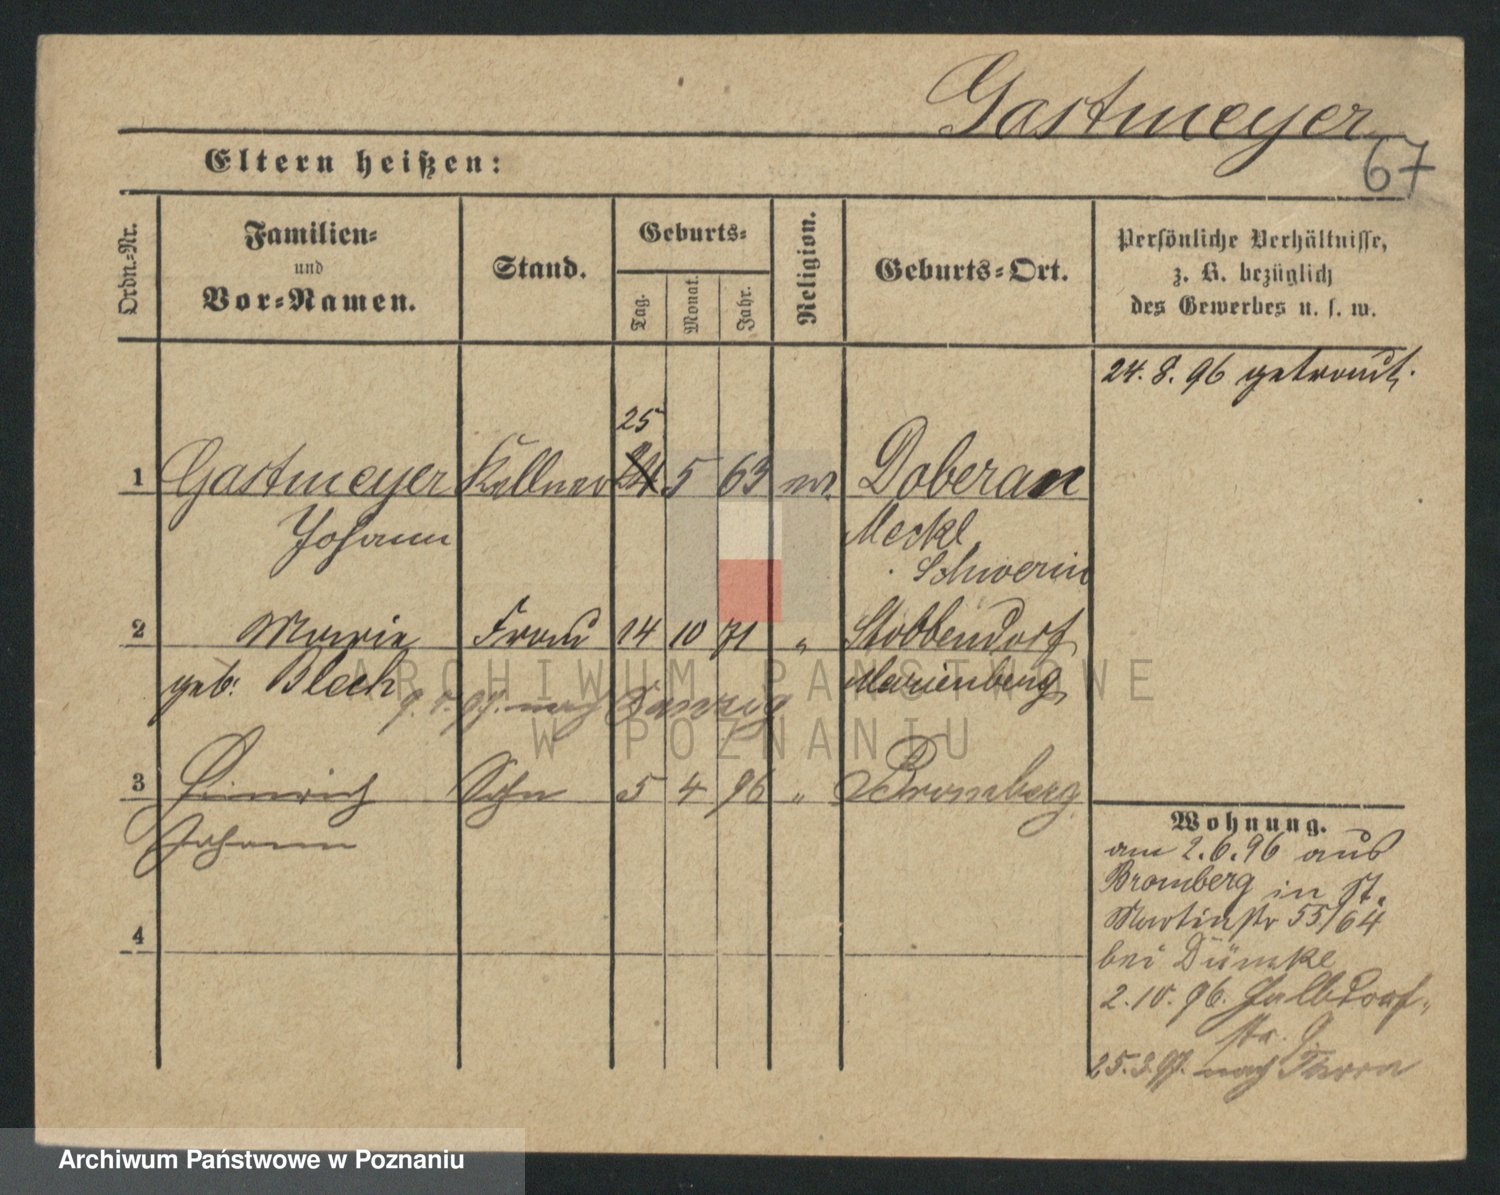 Gastmeyer
67
Eltern heißen:
Ordn.-Nr.
Familien-
und
Vor-Namen.
Stand.
Geburts-
Tag.
Monat.
Jahr.
Religion.
Geburts-Ort.
Persönliche Verhältnisse,
z. B. bezüglich
des Gewerbes u. s. w.
24. 8. 96 getraut.
25
1 Gastmeyer Kellner 24 5 63 ev. Doberan
Johann Meckl.
Schwerin
2 Marie Frau 14 10 71 " Stobbendorf
geb. Blech Marienberg
nach Danzig
3 Heinrich Sohn 5 4 96 " Bromberg
Johann
4
Wohnung.
am 2.6.96 aus
Bromberg in St.
Martinstr 55/64
bei Dümke
2.10.96. Halbdorf-
str. 9.
25.3.97. nach
ARCHIWUM PAŃSTWOWE
W POZNANIU
Archiwum Państwowe w Poznaniu